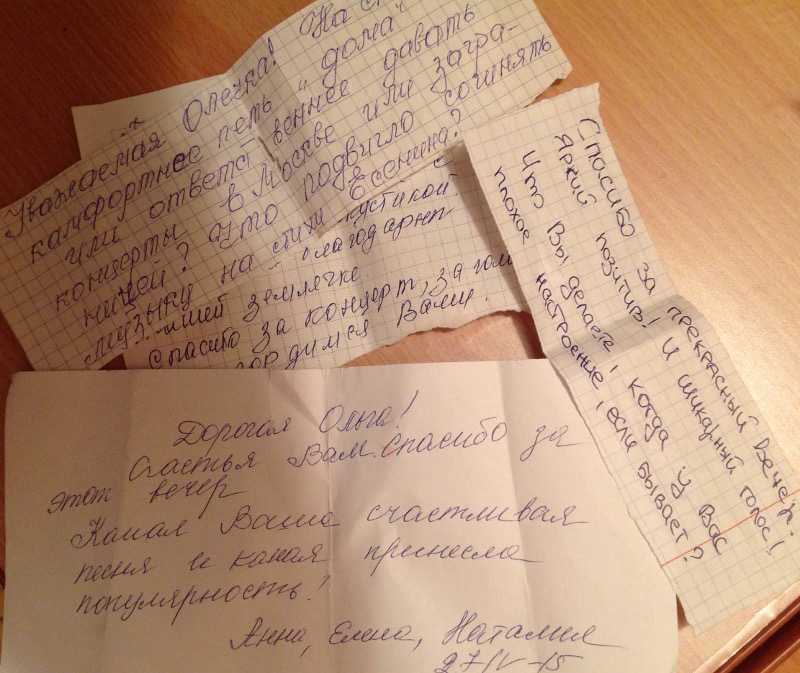 Уважаемая Олечка! На с
камфортнее петь „дома"
или ответственнее давать
концерты в Москве или загра-
ницей? Что подвигло сочинять
музыку на стихи Есенина?
кустикой
благодарны
нашей землячке.
Спасибо за концерт, за голос
гордимся Вами.
Спасибо за прекрасный вечер.
Яркий позитив! И шикарный голос!
Что Вы делаете, когда у Вас
плохое настроение, если бывает?
Дорогая Ольга!
Счастья Вам. Спасибо за
этот вечер
Какая Ваша счастливая
песня и какая принесла
популярность?
Анна, Елена, Наталия
27/IV-15